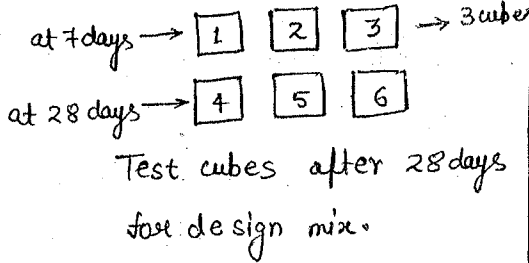 at 7 days → 1 2 3 → 3 cubes
at 28 days → 4 5 6
Test cubes after 28 days
for design mix.